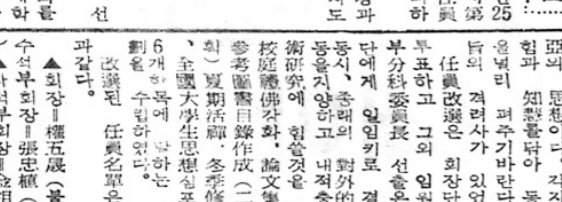 25
제
任員
하
경과
지도
선
를
학
亞의 思想이다. 각자
힘과 知慧를 닦아 동
을널리 펴주기바란다
旨의 격려사가 있었
任員改選은 회장단
투표하고 그외 임원
부分科委員長 선출은
단에게 일임키로 결
동시、종래의 對外的
동을지양하고 내적충
術硏究에 힘쓸것을
校庭禮佛강화、論文集
參考圖書目錄作成(二
획) 夏期活禪、冬季修
、全國大學生思想심포
6개항목에 달하는
劃을 수립하였다.
改選된 任員名單은
과같다.
▲회장=權五晟(불
수석부회장=張忠植(
석부회장=金相